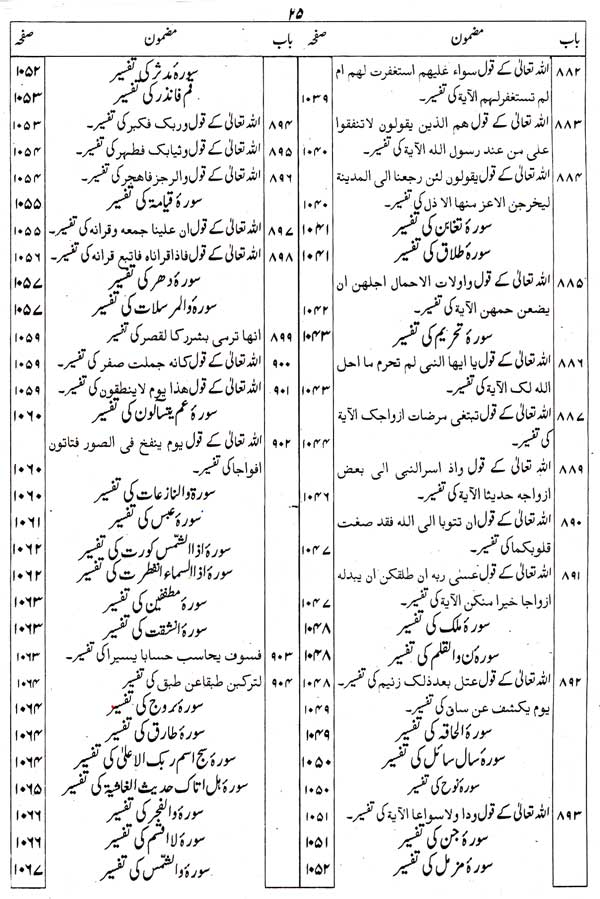 ۲۵
باب مضمون صفحہ
۸۸۲ اللہ تعالیٰ کے قول سواء علیھم استغفرت لھم ام
لم تستغفرلھم الآیة کی تفسیر۔ ۱۰۳۹
۸۸۳ اللہ تعالیٰ کے قول ھم الذین یقولون لاتنفقوا
علی من عند رسول اللہ الآیة کی تفسیر۔ ۱۰۴۰
۸۸۴ اللہ تعالیٰ کے قول یقولون لئن رجعنا الی المدینة
لیخرجن الاعز منھا الا ذل کی تفسیر۔ ۱۰۴۰
سورۂ تغابن کی تفسیر ۱۰۴۱
سورۂ طلاق کی تفسیر ۱۰۴۱
۸۸۵ اللہ تعالیٰ کے قول واولات الاحمال اجلھن ان
یضعن حمھن الآیة کی تفسیر۔ ۱۰۴۲
سورۂ تحریم کی تفسیر ۱۰۴۳
۸۸۶ اللہ تعالیٰ کے قول یا ایھا النبی لم تحرم ما احل
اللہ لک الآیة کی تفسیر۔ ۱۰۴۳
۸۸۷ اللہ تعالیٰ کے قول تبتغی مرضات ازواجک الآیة
کی تفسیر۔ ۱۰۴۴
۸۸۹ اللہ تعالیٰ کے قول واذ اسرالنبی الی بعض
ازواجه حدیثا الآیة کی تفسیر۔ ۱۰۴۶
۸۹۰ اللہ تعالیٰ کے قول ان تتوبا الی اللہ فقد صغت
قلوبکما کی تفسیر۔ ۱۰۴۷
۸۹۱ اللہ تعالیٰ کے قول عسٰی ربه ان طلقکن ان یبدله
ازواجا خیرا منکن الآیة کی تفسیر۔ ۱۰۴۷
سورۂ ملک کی تفسیر ۱۰۴۸
سورۂ ن والقلم کی تفسیر ۱۰۴۸
۸۹۲ اللہ تعالیٰ کے قول عتل بعد ذلک زنیم کی تفسیر۔ ۱۰۴۸
یوم یکشف عن ساق کی تفسیر۔ ۱۰۴۹
سورۂ الحاقہ کی تفسیر ۱۰۴۹
سورۂ سال سائل کی تفسیر ۱۰۵۰
سورۂ نوح کی تفسیر ۱۰۵۰
۸۹۳ اللہ تعالیٰ کے قول ودا ولا سواعا الآیة کی تفسیر۔ ۱۰۵۱
سورۂ جن کی تفسیر ۱۰۵۱
سورۂ مزمل کی تفسیر ۱۰۵۲
باب مضمون صفحہ
سورۂ مدثر کی تفسیر ۱۰۵۲
قم فانذر کی تفسیر ۱۰۵۳
۸۹۴ اللہ تعالیٰ کے قول وربک فکبر کی تفسیر۔ ۱۰۵۳
۸۹۵ اللہ تعالیٰ کے قول وثیابک فطھر کی تفسیر۔ ۱۰۵۴
۸۹۶ اللہ تعالیٰ کے قول والرجز فاھجر کی تفسیر۔ ۱۰۵۴
سورۂ قیامۃ کی تفسیر ۱۰۵۵
۸۹۷ اللہ تعالیٰ کے قول ان علینا جمعه وقرانه کی تفسیر۔ ۱۰۵۵
۸۹۸ اللہ تعالیٰ کے قول فاذاقراناہ فاتبع قرانه کی تفسیر۔ ۱۰۵۶
سورۂ دھر کی تفسیر ۱۰۵۷
سورۂ والمرسلات کی تفسیر ۱۰۵۷
۸۹۹ انھا ترمی بشررکا لقصر کی تفسیر ۱۰۵۹
۹۰۰ اللہ تعالیٰ کے قول کانه جملت صفر کی تفسیر۔ ۱۰۵۹
۹۰۱ اللہ تعالیٰ کے قول ھذا یوم لاینطقون کی تفسیر۔ ۱۰۵۹
سورۂ عم یتسآلون کی تفسیر ۱۰۶۰
۹۰۲ اللہ تعالیٰ کے قول یوم ینفخ فی الصور فتاتون
افواجا کی تفسیر۔ ۱۰۶۰
سورۂ والنازعات کی تفسیر ۱۰۶۰
سورۂ عبس کی تفسیر ۱۰۶۱
سورۂ اذا الشمس کورت کی تفسیر ۱۰۶۲
سورۂ اذا السماء انفطرت کی تفسیر ۱۰۶۲
سورۂ مطففین کی تفسیر ۱۰۶۳
سورۂ انشقت کی تفسیر ۱۰۶۳
۹۰۳ فسوف یحاسب حسابا یسیرا کی تفسیر۔ ۱۰۶۳
۹۰۴ لترکبن طبقا عن طبق کی تفسیر ۱۰۶۴
سورۂ بروج کی تفسیر ۱۰۶۴
سورۂ طارق کی تفسیر ۱۰۶۴
سورۂ سبح اسم ربک الاعلیٰ کی تفسیر ۱۰۶۴
سورۂ ہل اتاک حدیث الغاشیۃ کی تفسیر ۱۰۶۵
سورۂ والفجر کی تفسیر ۱۰۶۶
سورۂ لا اقسم کی تفسیر ۱۰۶۶
سورۂ والشمس کی تفسیر ۱۰۶۷